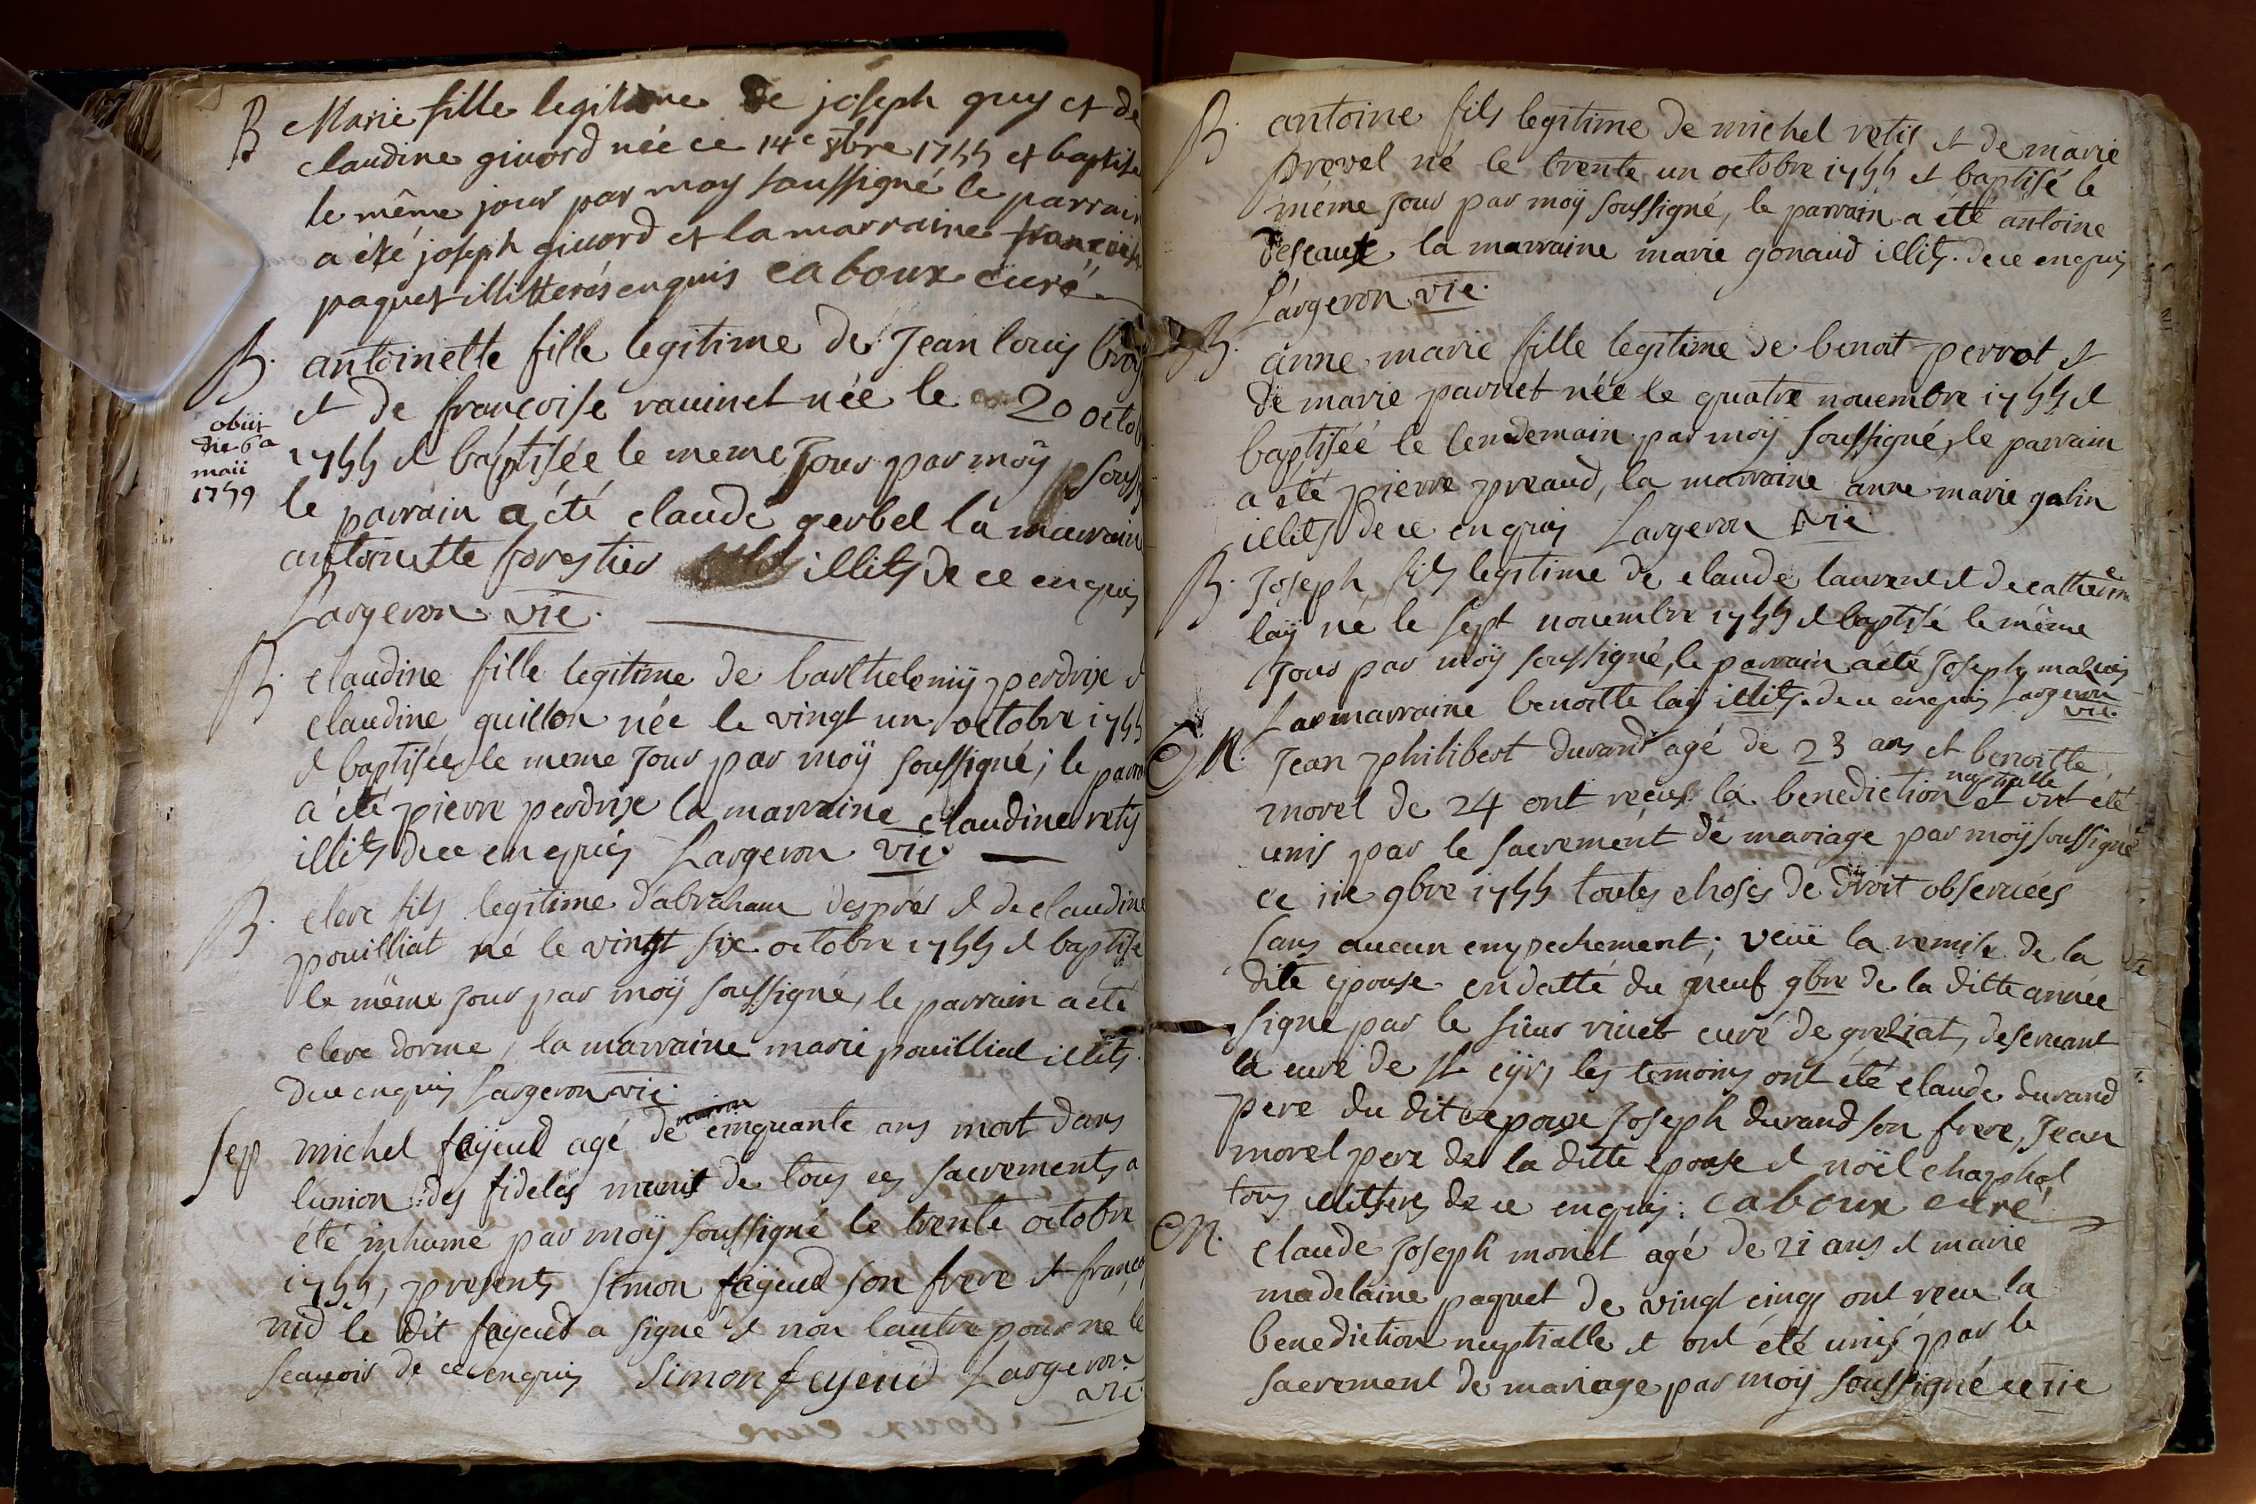 B Marie fille legitime de joseph guy et de
claudine givord née ce 14e 8bre 1755 et baptisé
le même jour par moy soussigné le parrain
a été joseph givord et la marraine françoise
paquet illitterés enquis caboux curé
B. antoinette fille legitime de Jean louis broy
et de françoise ravinet née le 20 octob
1755 et baptisée le meme Jour par moÿ souss
le parrain a été claude gerbel la marrain
antoinette forestier illits de ce enquis
Largeron vic.
obiit
die 6a
maii
1759
B. claudine fille legitime de barthelemÿ perdrix et
claudine guillon née le vingt un octobre 1755
et baptisée le meme Jour par moÿ soussigné; le parra
a été pierre perdrix la marraine claudine retis
illits de ce enquis Largeron vic.
B. clere fils legitime d'abraham després et de claudine
pouilliat né le vingt six octobre 1755 et baptisé
le même jour par moÿ soussigné, le parrain a été
clere dorme, la marraine marie pouïlliat illits.
de ce enquis Largeron vic.
sep michel feÿeud agé de environ cinquante ans mort dans
lunion des fideles muni de tous ces sacrements a
été inhumé par moÿ soussigné le trente octobre
1755, presents simon feÿeud son frere et franço
nid le dit feyeud a signé et non lautre pour ne le
sçavoir de ce enquis Simon feyeud Largeron
vic
B. antoine fils legitime de michel retis et de marie
prevel né le trente un octobre 1755 et baptisé le
méme jour par moÿ soussigné, le parrain a été antoine
deseaux la marraine marie gonaud illits. de ce enquis
Largeron vic.
B. anne marie fille legitime de benoit perrot et
de marie parnet née le quatre novembre 1755 et
baptisée le lendemain par moÿ soussigné, le parrain
a été pierre preaud, la marraine anne marie galin
illits de ce enquis Largeron vic
B. Joseph fils legitime de claude laurent et de catherine
laÿ né le sept novembre 1755 et baptisé le même
Jour par moÿ soussigné, le parrain a été Joseph
La marraine benoitte laÿ illits. de ce enquis Largeron
vic.
M. Jean philibert durand agé de 23 ans et benoitte
morel de 24 ont reçus la benediction nuptialle et ont été
unis par le sacrement de mariage par moÿ soussigné
ce 11e 9bre 1755 toutes choses de droit observées
sans aucun empechement; veuë la remise de la
dite epouse en datté du neuf 9bre de la ditte année
signé par le sieur rivet curé de greziat, deservant
la cure de st cÿr, les temoins ont été claude durand
pere du dit epoux Joseph durand son frere, Jean
morel pere de la ditte epouse et noël chaphol
tous illitteres de ce enquis: caboux curé
M. claude Joseph monet agé de 21 ans et marie
madelaine paquet de vingt cinq ont recu la
benediction nuptialle et ont été unis par le
sacrement de mariage par moÿ soussigné ce 11e